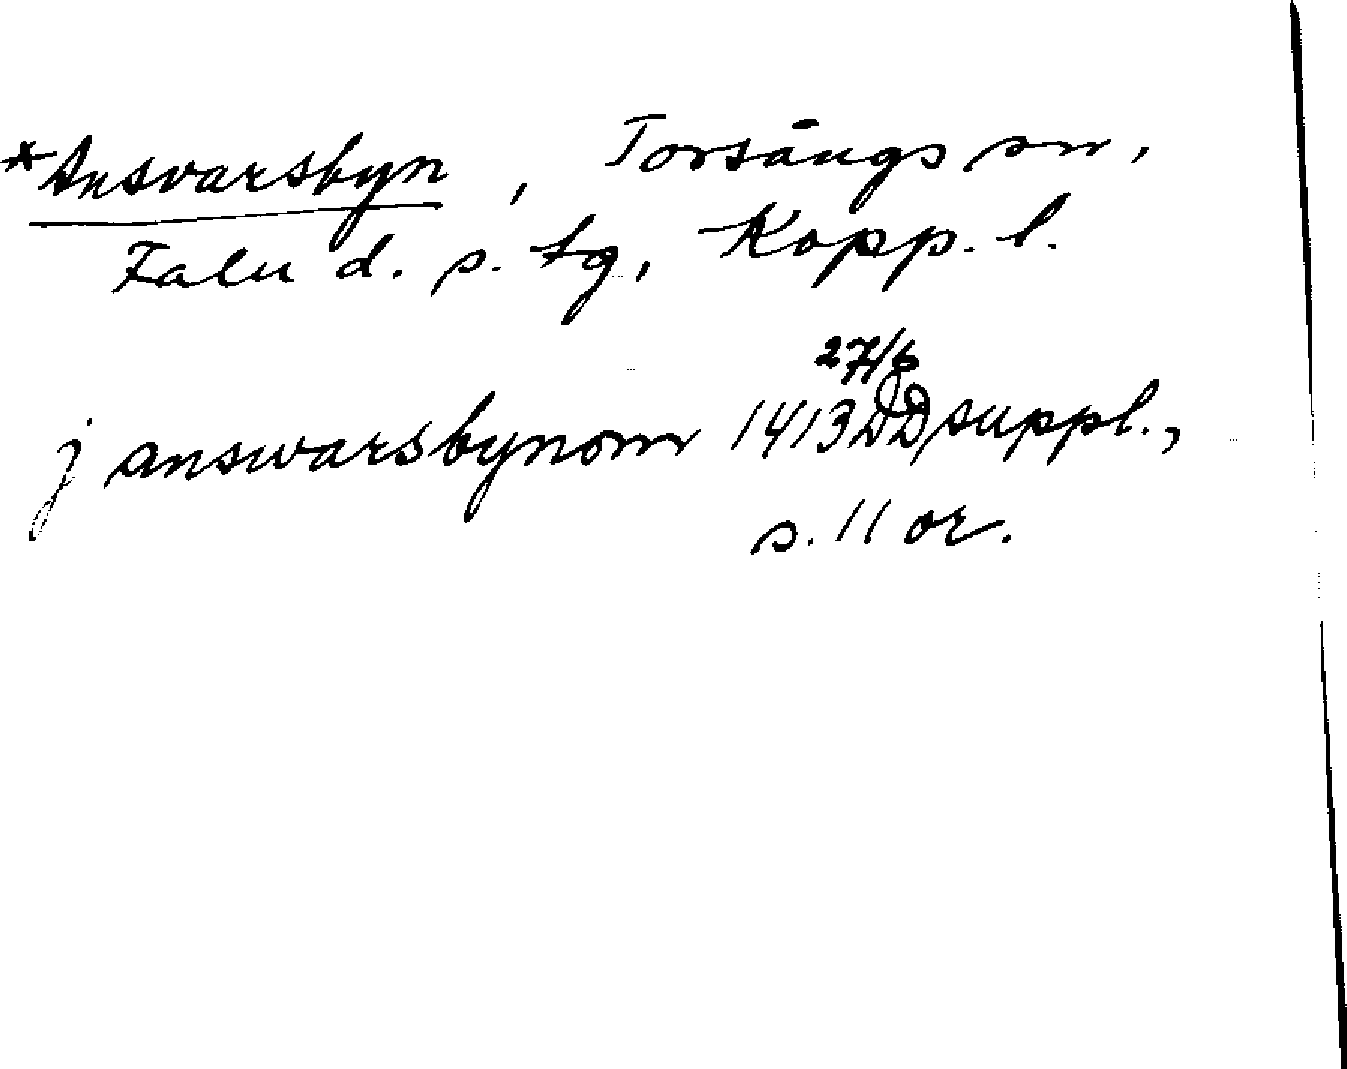 *Ansvarsbyn, Torsångs sn,
Falu d. s. tg, Kopp. l.
27/6
j answarsbynom 1413 DD suppl.,
s. 11 or.